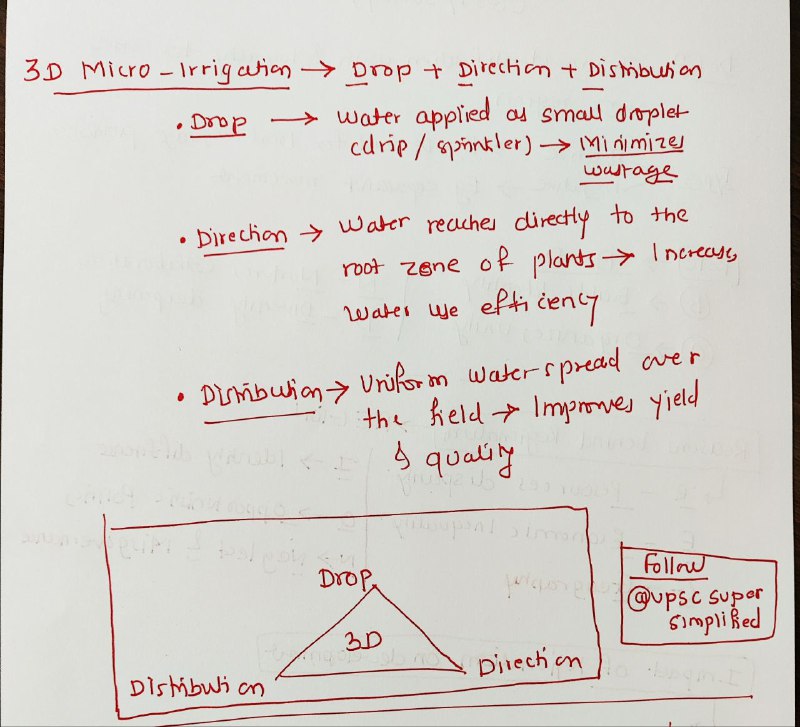 3D Micro-Irrigation → Drop + Direction + Distribution
• Drop → Water applied as small droplet
(drip / sprinkler) → Minimizes
wastage
• Direction → Water reaches directly to the
root zone of plants → Increases
water use efficiency
• Distribution → Uniform water spread over
the field → Improves yield
& quality
Drop
3D
Distribution
Direction
Follow
@upsc super
simplified